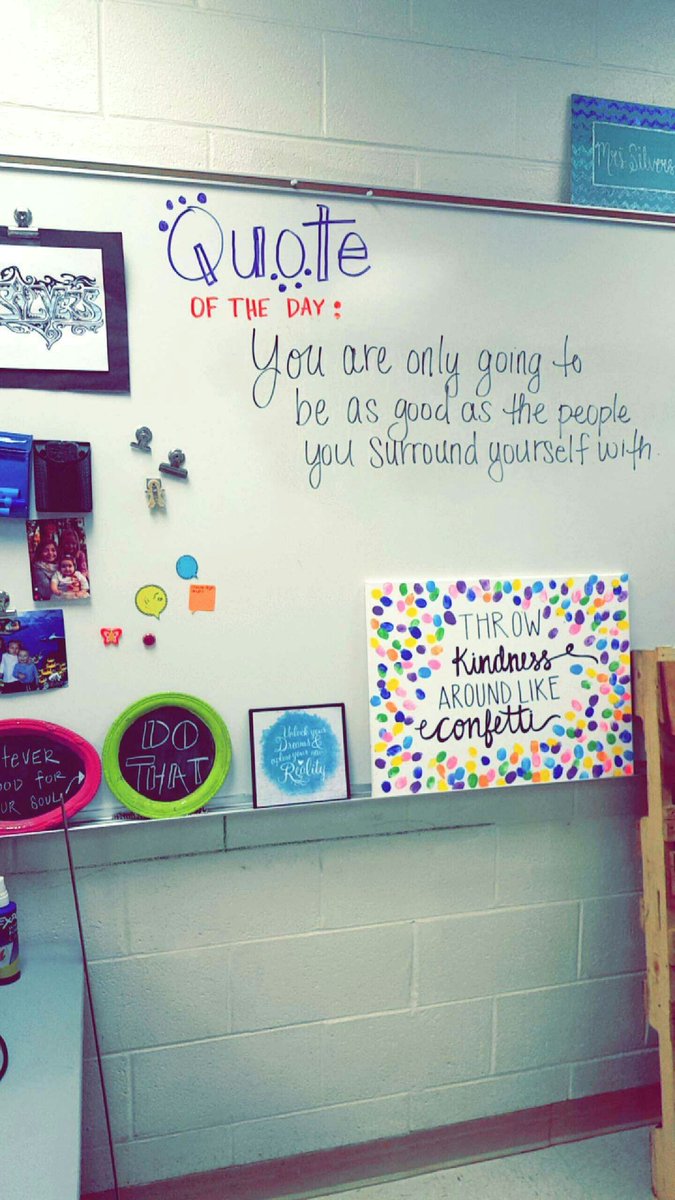 Mrs. Silvers
Quote
OF THE DAY:
You are only going to
be as good as the people
you surround yourself with.
SILVERS
THROW
kindness
AROUND LIKE
confetti
DO
THAT
Unlock your
Dreams &
Reality
OOD FOR
UR SOUL